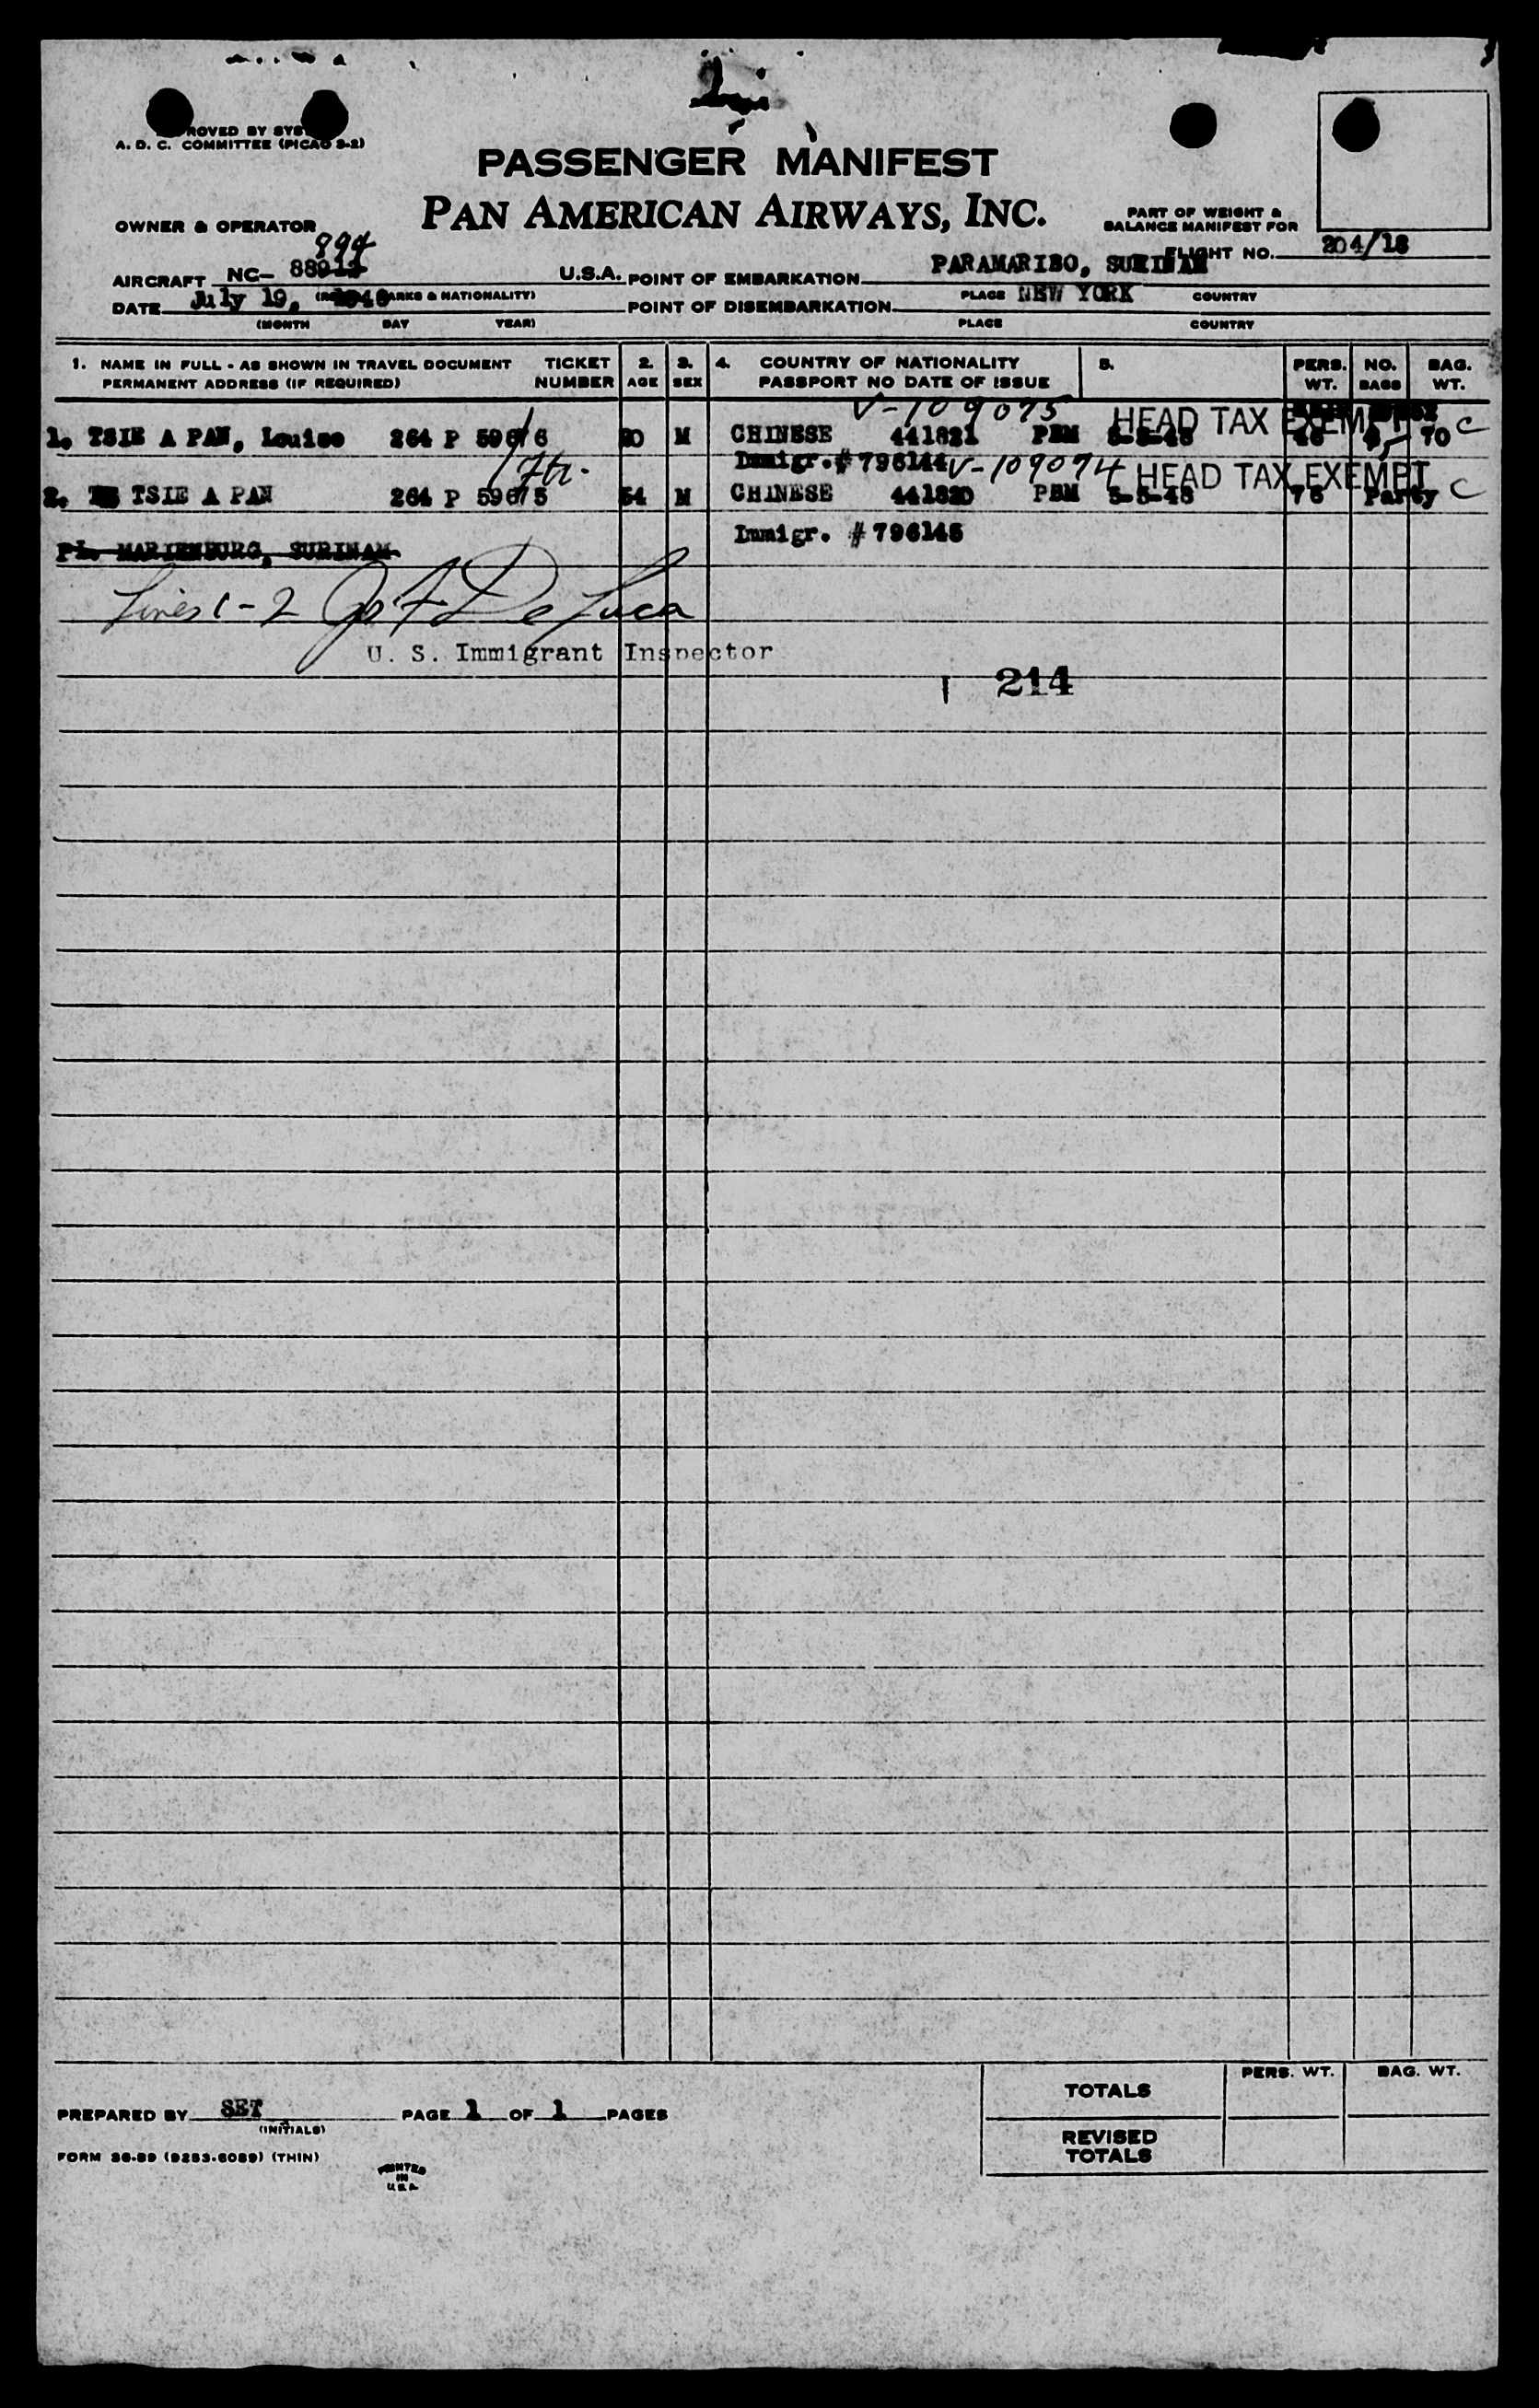 ROVED BY SYS
A. D. C. COMMITTEE (PICAO 3-2)
PASSENGER MANIFEST
PAN AMERICAN AIRWAYS, INC.
OWNER & OPERATOR
PART OF WEIGHT &
BALANCE MANIFEST FOR
FLIGHT NO. 204/18
894
AIRCRAFT NC- 88913 U.S.A. POINT OF EMBARKATION PARAMARIBO, SURINAM
(MARKS & NATIONALITY) PLACE COUNTRY
DATE July 19, 1948 POINT OF DISEMBARKATION NEW YORK
(MONTH DAY YEAR) PLACE COUNTRY
1. NAME IN FULL - AS SHOWN IN TRAVEL DOCUMENT TICKET 2. 3. 4. COUNTRY OF NATIONALITY 5. PERS. NO. BAG.
PERMANENT ADDRESS (IF REQUIRED) NUMBER AGE SEX PASSPORT NO DATE OF ISSUE WT. BAGS WT.
V-109075 HEAD TAX EXEMPT
1. TSIE A PAN, Louise 264 P 59676 20 M CHINESE 441821 PBM 5-5-48 70 C
7tr. Immigr.# 796144 V-109074 HEAD TAX EXEMPT
2. TSIE A PAN 264 P 59675 54 M CHINESE 441820 PBM 5-5-48 76 Party C
Pl. MARIENBURG, SURINAM Immigr. # 796145
Lines 1-2 Jos F De Luca
U. S. Immigrant Inspector
214
PERS. WT. BAG. WT.
TOTALS
PREPARED BY SET PAGE 1 OF 1 PAGES
(INITIALS)
REVISED
TOTALS
FORM 36-89 (9253-6089) (THIN)
PRINTED
IN
U.S.A.